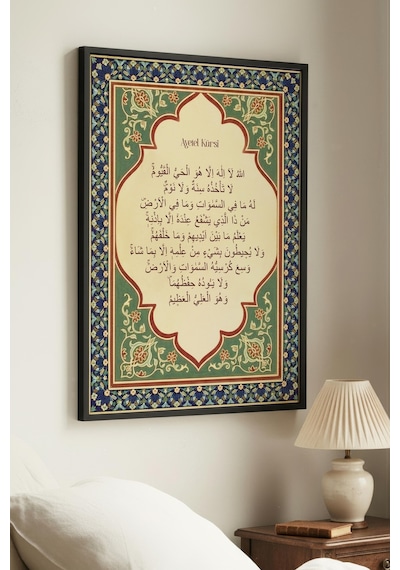 Ayetel Kürsi
اَللهُ لَا اِلٰهَ اِلَّا هُوَ الْحَيُّ الْقَيُّومُ
لَا تَأْخُذُهُ سِنَةٌ وَلَا نَوْمٌ
لَهُ مَا فِي السَّمٰوَاتِ وَمَا فِي الْاَرْضِ
مَنْ ذَا الَّذِي يَشْفَعُ عِنْدَهُ اِلَّا بِاِذْنِهِ
يَعْلَمُ مَا بَيْنَ اَيْدِيهِمْ وَمَا خَلْفَهُمْ
وَلَا يُحِيطُونَ بِشَيْءٍ مِنْ عِلْمِهِ اِلَّا بِمَا شَاءَ
وَسِعَ كُرْسِيُّهُ السَّمٰوَاتِ وَالْاَرْضَ
وَلَا يَؤُدُهُ حِفْظُهُمَا
وَهُوَ الْعَلِيُّ الْعَظِيمُ